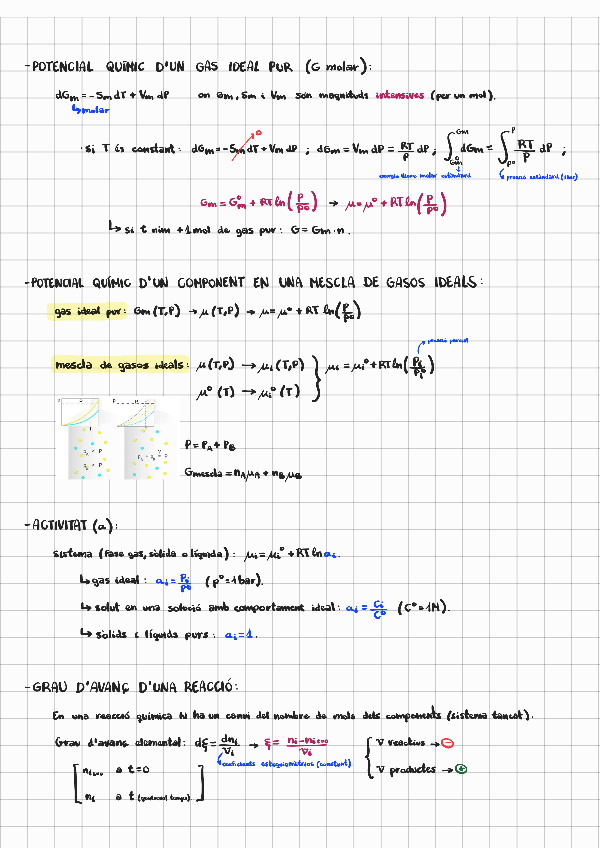 -POTENCIAL QUÍMIC D'UN GAS IDEAL PUR (G molar):
dGm = -Sm dT + Vm dP on Gm, Sm i Vm són magnituds intensives (per un mol).
↳molar
· si T és constant: dGm = -Sm dT + Vm dP ; dGm = Vm dP = RT/P dP ; ∫ Gm° Gm dGm = ∫ P° P RT/P dP ;
0
energia lliure molar estàndard pressió estàndard (1bar)
Gm = G°m + RT ln(P/P°) → μ = μ° + RT ln(P/P°)
↳ si t nim +1 mol de gas pur: G = Gm·n.
-POTENCIAL QUÍMIC D'UN COMPONENT EN UNA MESCLA DE GASOS IDEALS:
gas ideal pur: Gm (T,P) → μ (T,P) → μ = μ° + RT ln(P/P°)
pressió parcial
mescla de gasos ideals: μ(T,P) → μi (T,P) } μi = μi° + RT ln(Pi/Pi°)
μ° (T) → μi° (T)
P = PA + PB
Gmescla = nA μA + nB μB
-ACTIVITAT (a):
Sistema (fase gas, sòlida o líquida): μi = μi° + RT ln ai.
↳ gas ideal: ai = Pi/P° (p° = 1bar).
↳ solut en una solució amb comportament ideal: ai = Ci/C° (C° = 1M).
↳ sòlids i líquids purs: ai = 1.
-GRAU D'AVANÇ D'UNA REACCIÓ:
En una reacció química hi ha un canvi del nombre de mols dels components (sistema tancat).
Grau d'avanç elemental: dξ = dni/νi → ξ = ni - ni t=0/νi { ν reactius → ⊖
↳ coeficients estequiomètrics (constant) ν productes → ⊕
[ ni t=0 a t=0
ni a t (qualsevol temps) ]